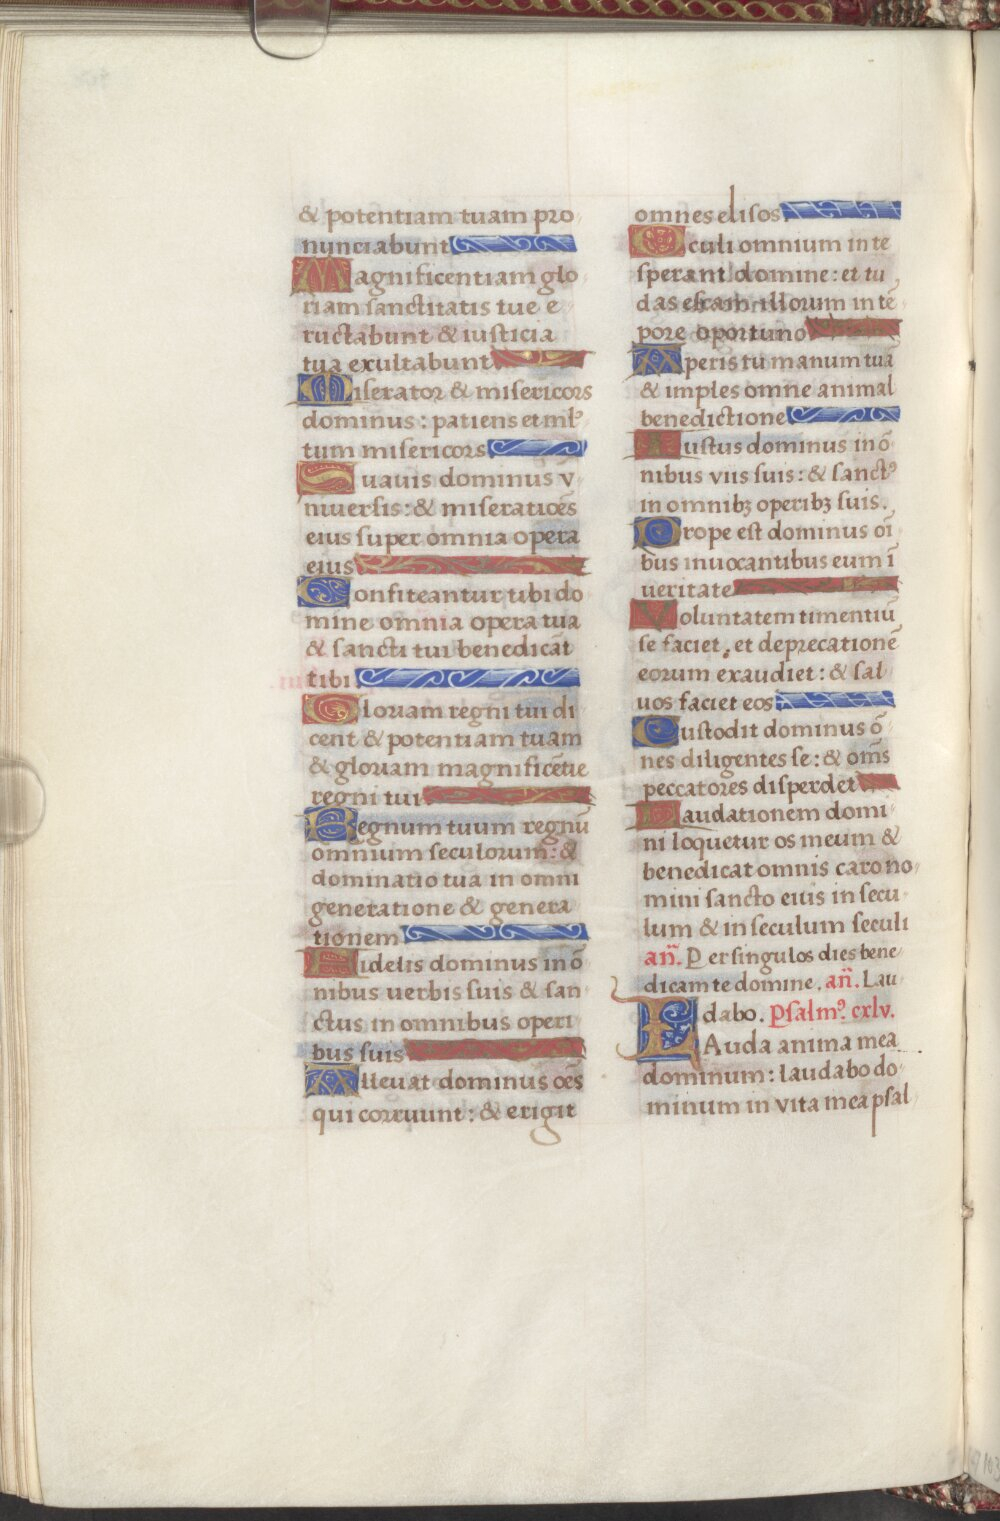 & potentiam tuam pro
nunciabunt
Magnificentiam glo
riam sanctitatis tue e
ructabunt & iusticia
tua exultabunt
Miserator & misericors
dominus : patiens et ml̄
tum misericors
Suauis dominus v
niuersis : & miseratiões
eius super omnia opera
eius
Confiteantur tibi do
mine omnia opera tua
& sancti tui benedicāt
tibi
Gloriam regni tui di
cent & potentiam tuam
& gloriam magnificētie
regni tui
Regnum tuum regnū
omnium seculorum : &
dominatio tua in omni
generatione & genera
tionem
Fidelis dominus in ō
nibus uerbis suis & san
ctus in omnibus operi
bus suis
Alleuat dominus oēs
qui corruunt : & erigit
omnes elisos
Oculi omnium in te
sperant domine : et tu
das escam illorum in tē
pore oportuno
Aperis tu manum tuā
& imples omne animal
benedictione
Iustus dominus in ō
nibus viis suis : & sanctꝰ
in omnibꝫ operibꝫ suis.
Prope est dominus oī
bus inuocantibus eum ī
ueritate
Voluntatem timentiū
se faciet, et deprecationē
eorum exaudiet : & sal
uos faciet eos
Custodit dominus ō
nes diligentes se : & om̄s
peccatores disperdet
Laudationem domi
ni loquetur os meum &
benedicat omnis caro no
mini sancto eius in secu
lum & in seculum seculi
añ. Per singulos dies bene
dicam te domine. añ. Lau
dabo. Psalmꝰ. cxlv.
LAuda anima mea
dominum : laudabo do
minum in vita mea psal